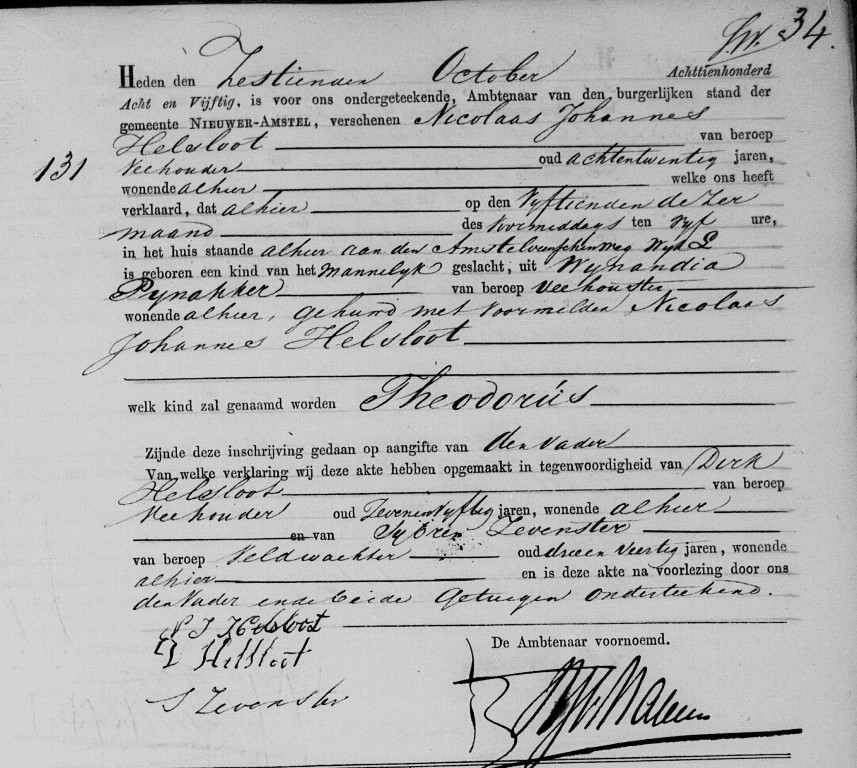 34.
Heden den Zestienden October Achttienhonderd
Acht en Vijftig, is voor ons ondergeteekende, Ambtenaar van den burgerlijken stand der
gemeente NIEUWER-AMSTEL, verschenen Nicolaas Johannes
Helsloot van beroep
131
Veehouder oud achtentwintig jaren,
wonende alhier welke ons heeft
verklaard, dat alhier op den Vyftienden dezer
maand des Voormiddags ten vyf ure,
in het huis staande alhier aan den Amstelveenschenweg Wyk L
is geboren een kind van het Mannelyk geslacht, uit Wynandia
Pynakker van beroep Veehoudster,
wonende alhier, gehuwd met voormelden Nicolaas
Johannes Helsloot
welk kind zal genaamd worden Theodorus
Zijnde deze inschrijving gedaan op aangifte van den vader
Van welke verklaring wij deze akte hebben opgemaakt in tegenwoordigheid van Dirk
Helsloot van beroep
Veehouder oud Zevenenvyftig jaren, wonende alhier
en van Sybren Zevenster
van beroep Veldwachter oud drieen veertig jaren, wonende
alhier en is deze akte na voorlezing door ons
den Vader en de beide Getuigen onderteekend.
N J Helsloot
De Ambtenaar voornoemd.
D Helsloot
S Zevenster